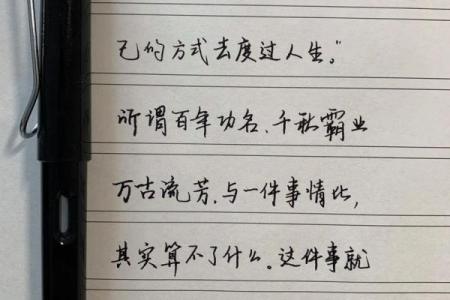 己的方式去度过人生。”
所谓百年功名、千秋霸业
万古流芳,与一件事情比,
其实算不了什么。这件事就